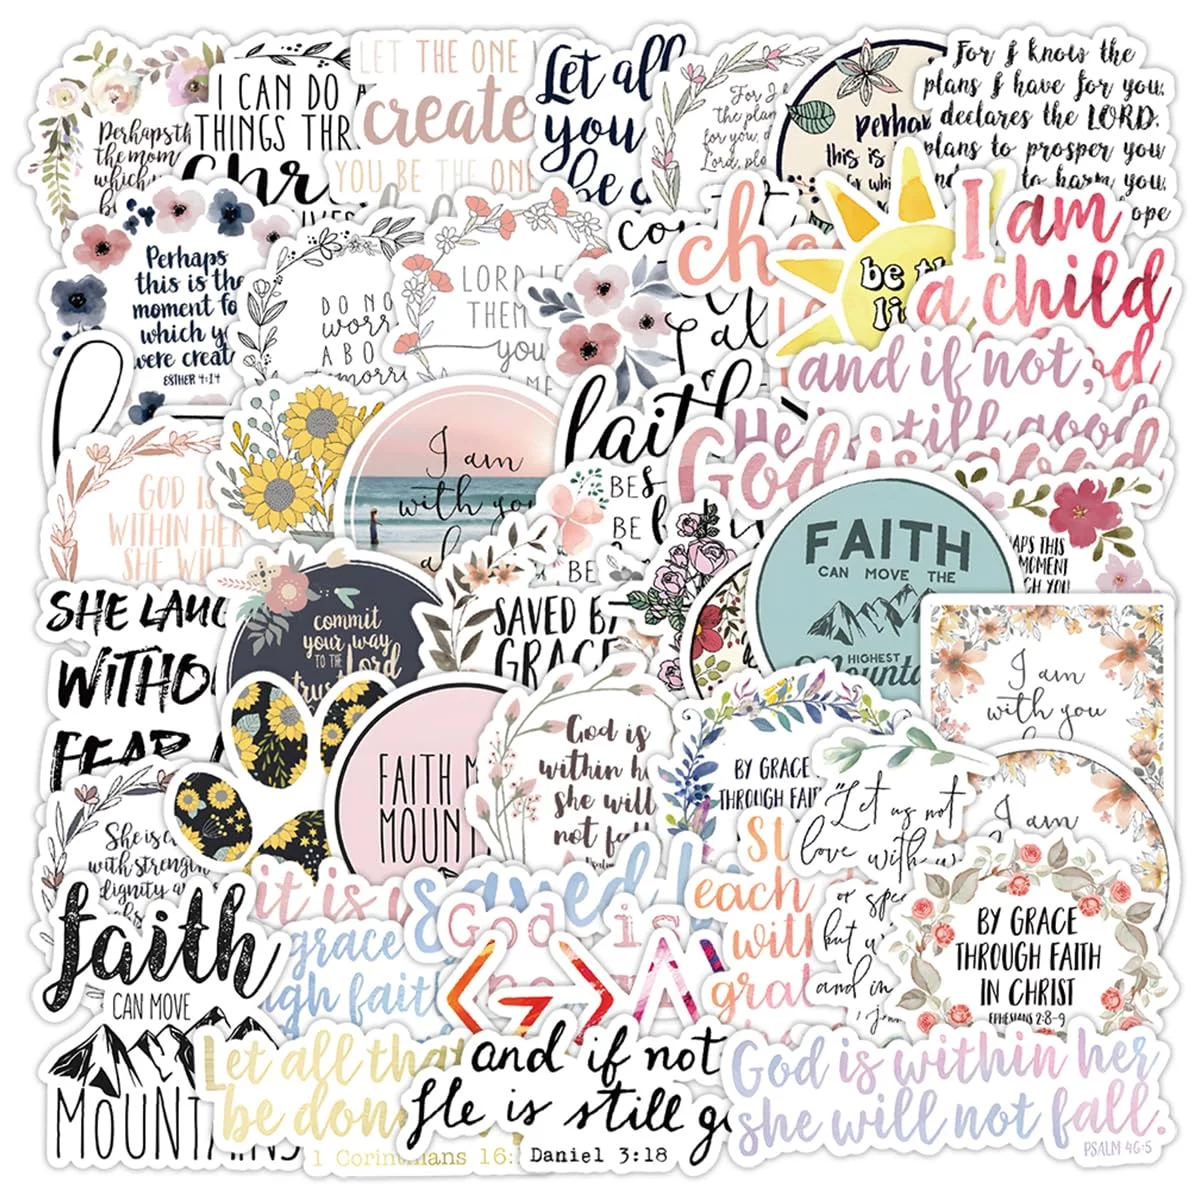 Perhaps th
the mom
which
I CAN DO
THINGS THR
Chri
LET THE ONE
create
YOU BE THE ONE
Let all
you
be d
For I
The plan
for you, d
Lord, pla
perhap
this is
for whi
For I know the
plans I have for you,
declares the LORD.
plans to prosper you
to harm you,
ope
Perhaps
this is the
moment fo
which y
were creat
ESTHER 4:14
DO NO
worr
ABO
tomorr
LORD
THEM
you
ME
cha
be th
li
I am
a child
and if not,
He is still good
God is good
GOD IS
WITHIN HER
SHE WIL
I am
with you
al
faith
BES
BE
BE
FAITH
CAN MOVE THE
HIGHEST
mounta
APS THIS
MOMENT
GH YOU
SHE LAUG
WITHO
FEAR
commit
your way
TO THE Lord
trust
SAVED BY
GRACE
I am
with you
FAITH M
MOUNT
God is
within he
she will
not fall
BY GRACE
THROUGH FAIT
"Let us not
love with w
or spee
but w
and in
I am
She is c
with strength
dignity a
faith
CAN MOVE
MOUNTAINS
it is
grace
gh fait
saved
God is
G
each
with
grat
BY GRACE
THROUGH FAITH
IN CHRIST
EPHESIANS 2:8-9
Let all tha
be don
1 Corinthians 16:
and if not
He is still g
Daniel 3:18
God is within her
she will not fall.
PSALM 46:5